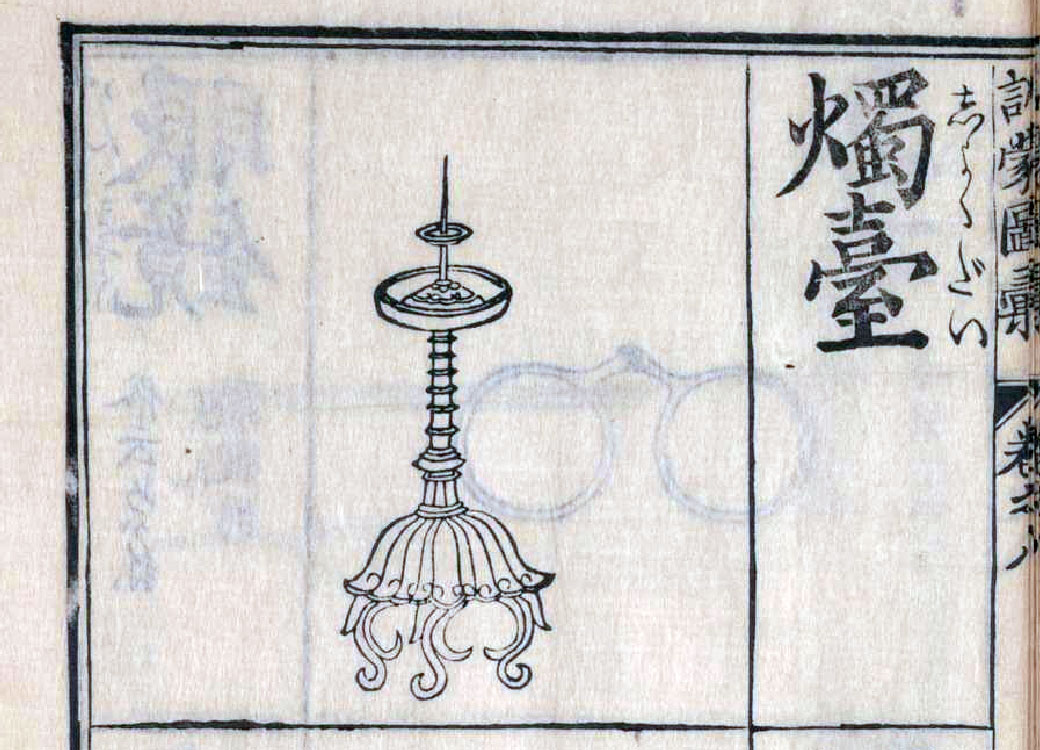 訓蒙圖彙　卷之八
しよくだい
燭臺